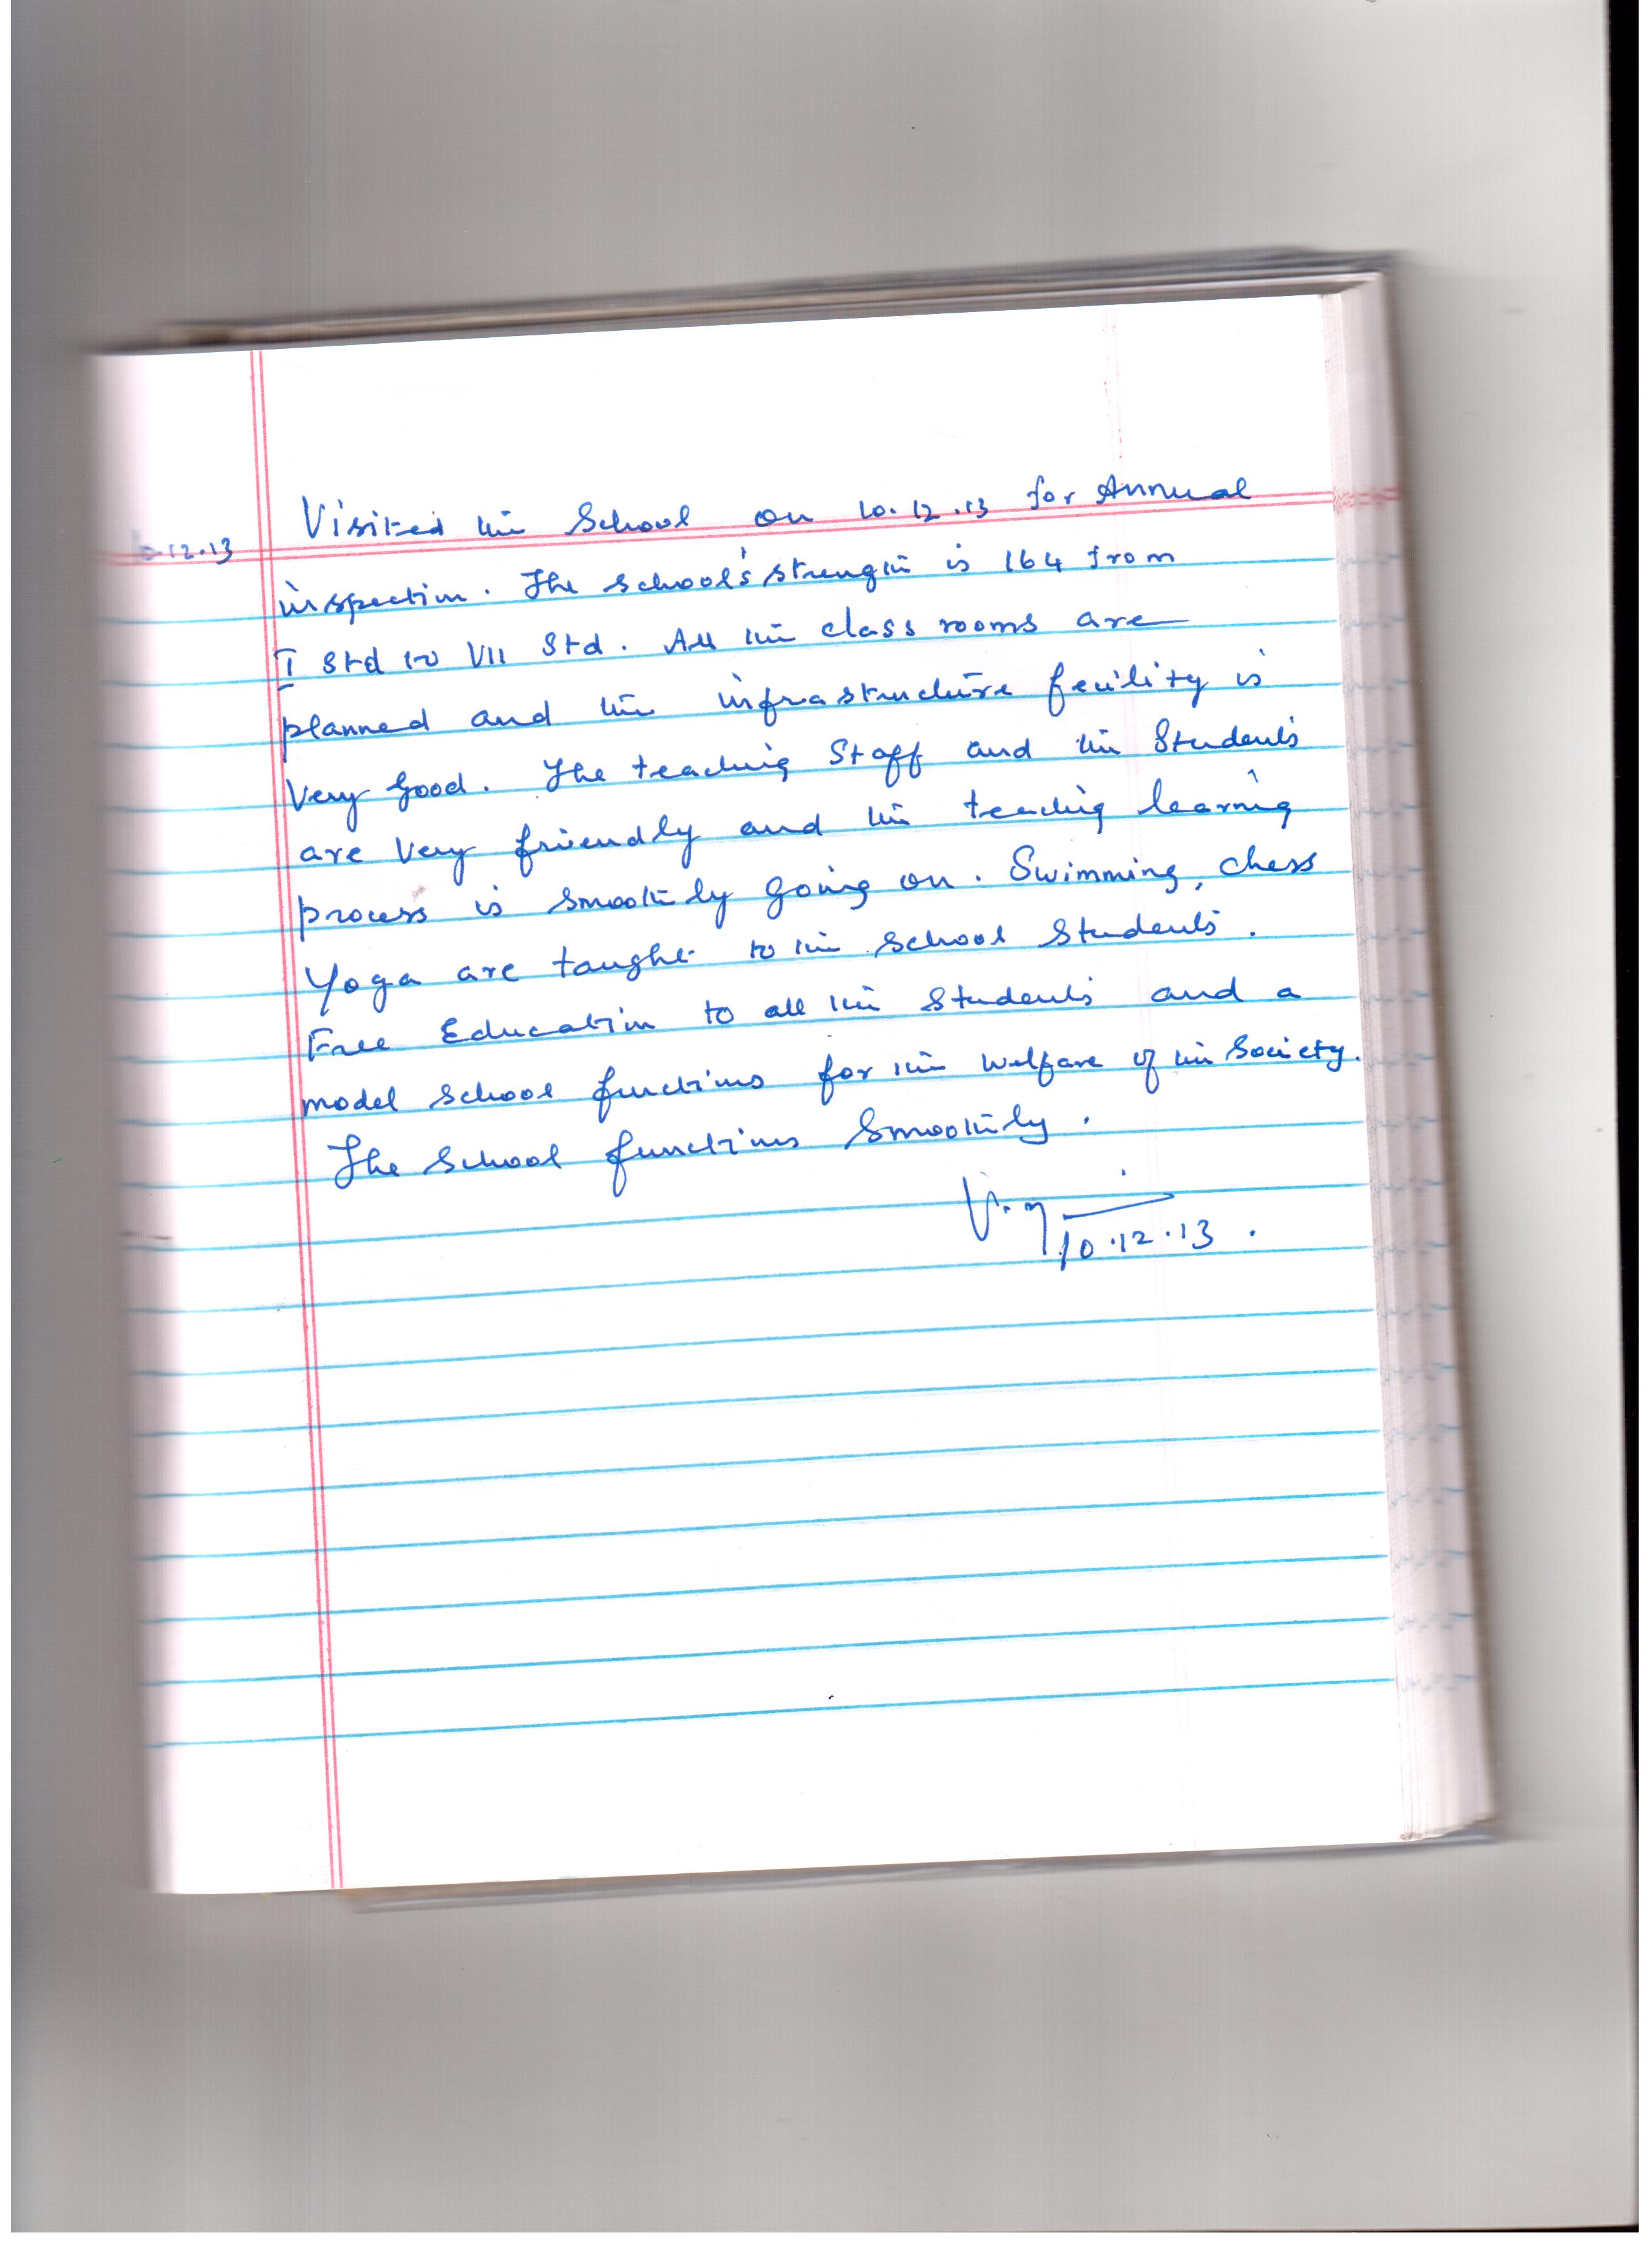 10.12.13
Visited the School on 10.12.13 for Annual
inspection. The school's strength is 164 from
I Std to VII Std. All the class rooms are
planned and the infrastructure facility is
very good. The teaching Staff and the Students
are very friendly and the teaching learning
process is smoothly going on. Swimming, chess
Yoga are taught to the school students.
Free Education to all the students and a
model school functions for the welfare of the Society.
The school functions smoothly.
10.12.13.